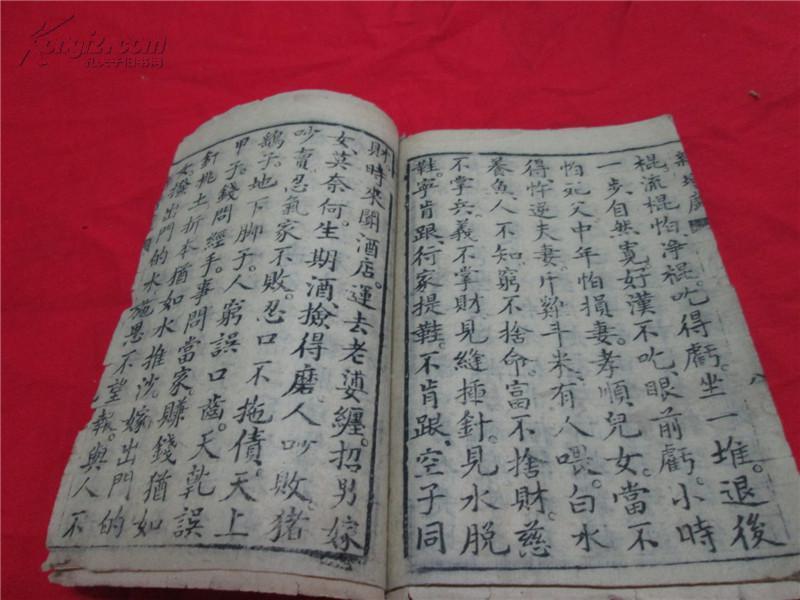 棍流棍怕凈棍吃得虧。坐一堆。退後
一步自然寬。好漢不吃眼前虧。小時
怕死父中年怕損妻。孝順兒女。當不
得忤逆夫妻。斤雞斗米有人喂。白水
養魚人不知。窮不捨命。富不捨財。慈
不掌兵。義不掌財見縫插針。見水脫
鞋。寧肯跟行家提鞋。不肯跟空子同
財。時來開酒店。運去老婆纏。招男嫁
女。莫奈何。生期酒、撿得磨。人吵敗。猪
吵賣。忍氣家不敗。忍口不拖債。天上
鷂子。地下脚子。人窮誤口齒。天乾誤
甲子。錢問經手。事問當家賺錢猶如
針挑土折本猶如水推沙嫁出門的
女潑出門的水施恩不望報。與人不
八
Kongfz.com
孔夫子旧书网